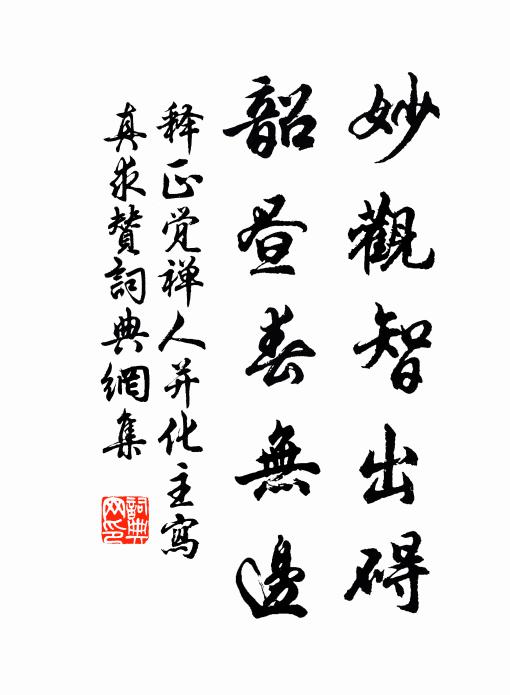 妙觀智出碍
韶晝春無邊
释正觉禅人并化主寫
真求赞詞典網集
詞典網印